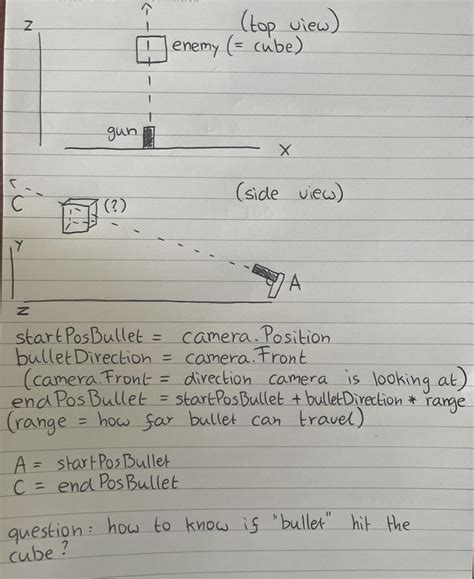 (top view)
Z
enemy (= cube)
gun
X
(side view)
C
(?)
Y
A
Z
startPosBullet = camera.Position
bulletDirection = camera.Front
(camera.Front = direction camera is looking at)
endPosBullet = startPosBullet + bulletDirection * range
(range = how far bullet can travel)
A = startPosBullet
C = endPosBullet
question: how to know if "bullet" hit the
cube?